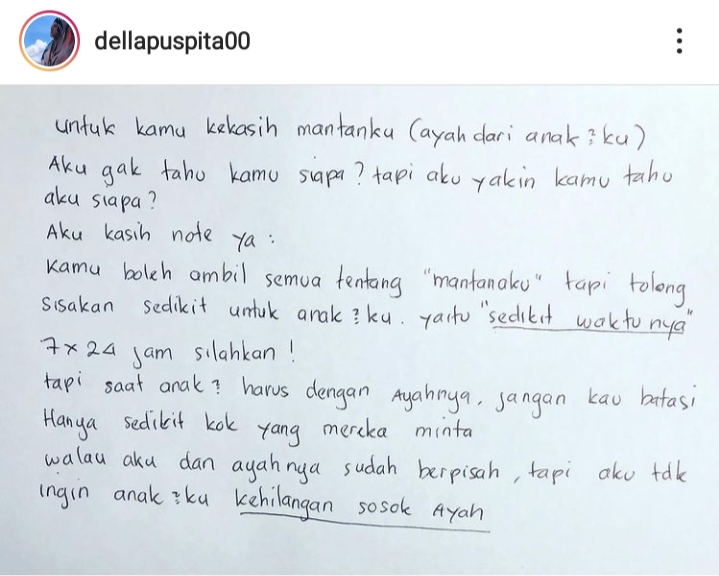 dellapuspita00
untuk kamu kekasih mantanku (ayah dari anak²ku)
Aku gak tahu kamu siapa? tapi aku yakin kamu tahu
aku siapa?
Aku kasih note ya :
Kamu boleh ambil semua tentang "mantanaku" tapi tolong
sisakan sedikit untuk anak²ku. yaitu "sedikit waktunya"
7x24 jam silahkan!
tapi saat anak² harus dengan Ayahnya, jangan kau batasi
Hanya sedikit kok yang mereka minta
walau aku dan ayahnya sudah berpisah, tapi aku tdk
ingin anak²ku kehilangan sosok Ayah